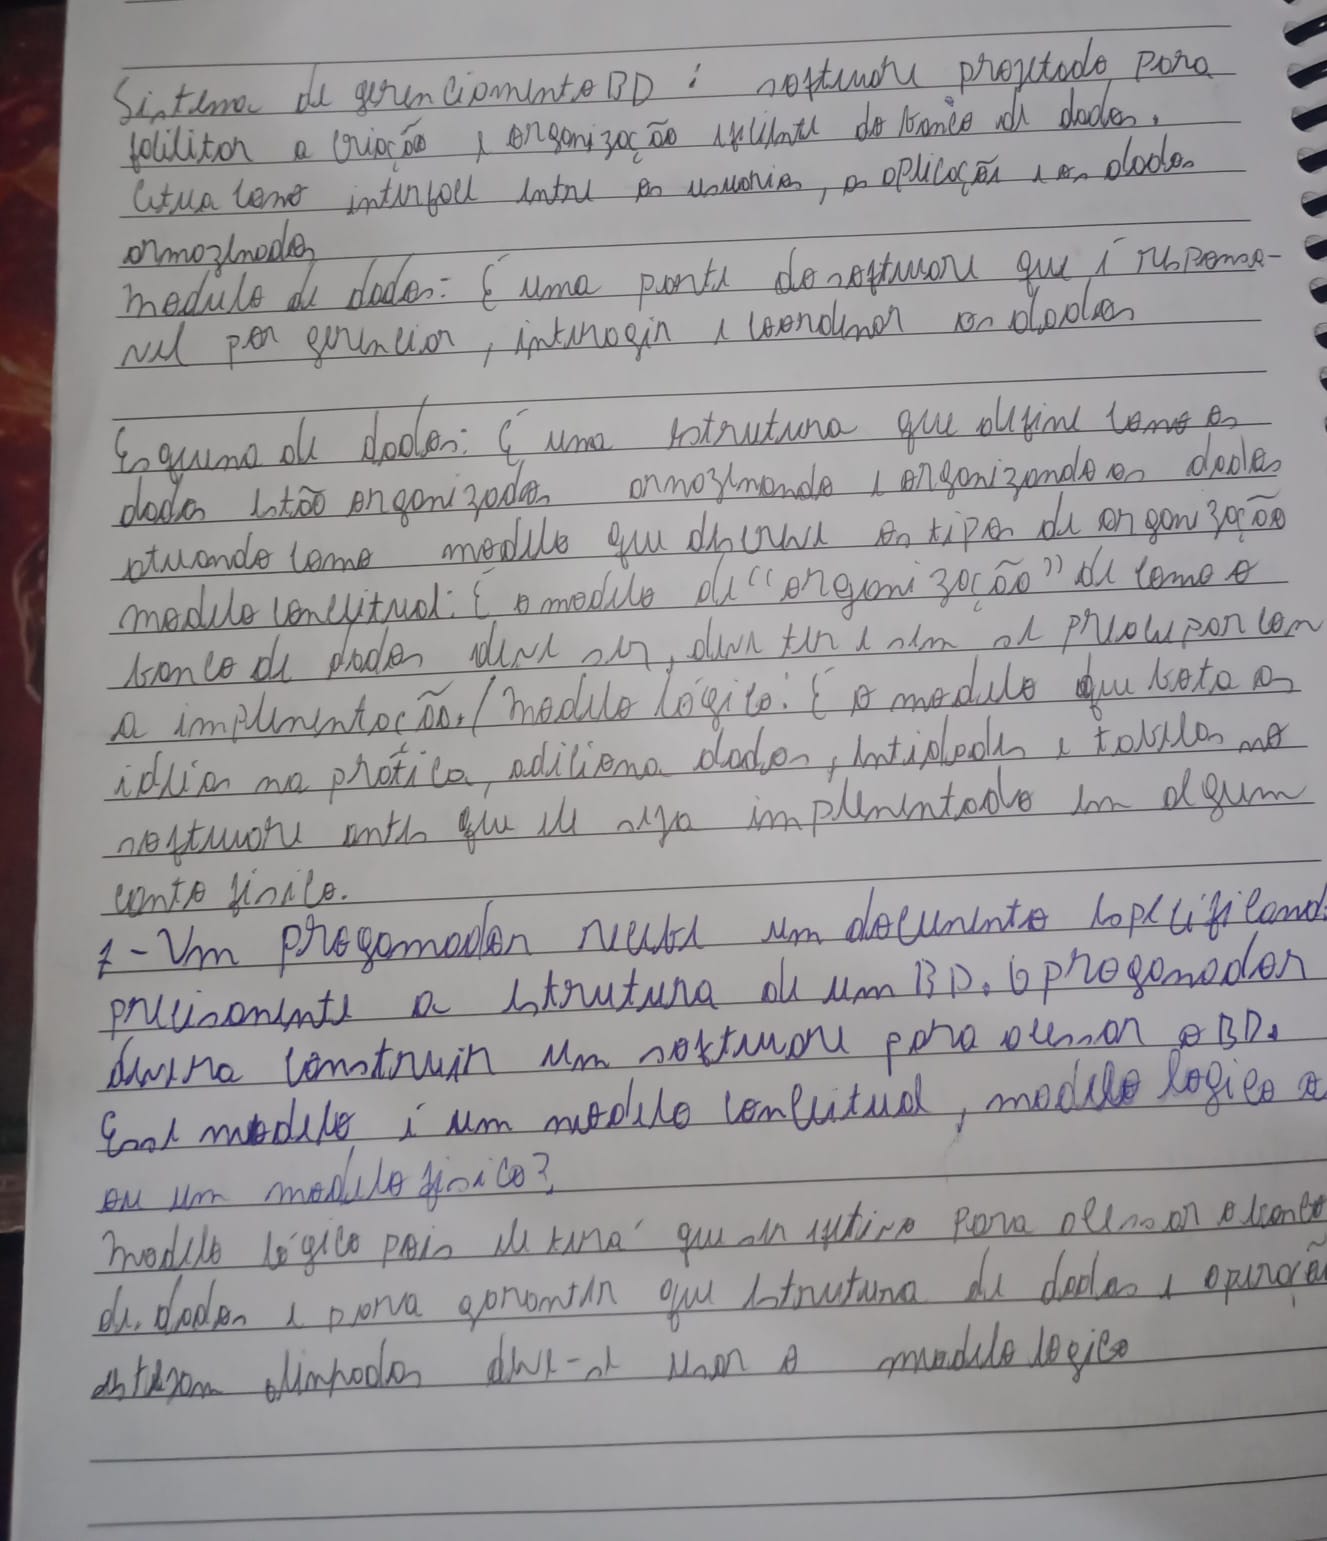 Sistema de gerenciamento BD : software projetado para
facilitar a criação e organização eficiente do banco de dados.
Atua como interface entre os usuários, as aplicações e os dados
armazenados
modulo de dados: É uma parte do software que é responsa-
vel por gerenciar, interagir e coordenar os dados
Esquema de dados: É uma estrutura que define como os
dados estão organizados armazenando e organizando os dados
atuando como modelo que descreve os tipos de organização
modelo conceitual: É o modelo de "organização" de como o
banco de dados deve ser, deve ter e sem se preocupar com
a implementação. / modelo lógico: É o modelo que bota as
ideias na prática, adiciona dados, entidades e tabelas no
software antes que ele seja implementado em algum
canto físico.
1 - Um progamador recebe um documento especificand
precisamente a estrutura de um BD. O progamador
devera construir um software para acessar o BD.
Esse modelo é um modelo conceitual, modelo logico e
ou um modelo físico?
modelo lógico pois ele terá que ser efetivo para acessar o banco
de dados e para garantir que estrutura de dados e operaçõe
estejam limpados deve-se usar o modelo logico